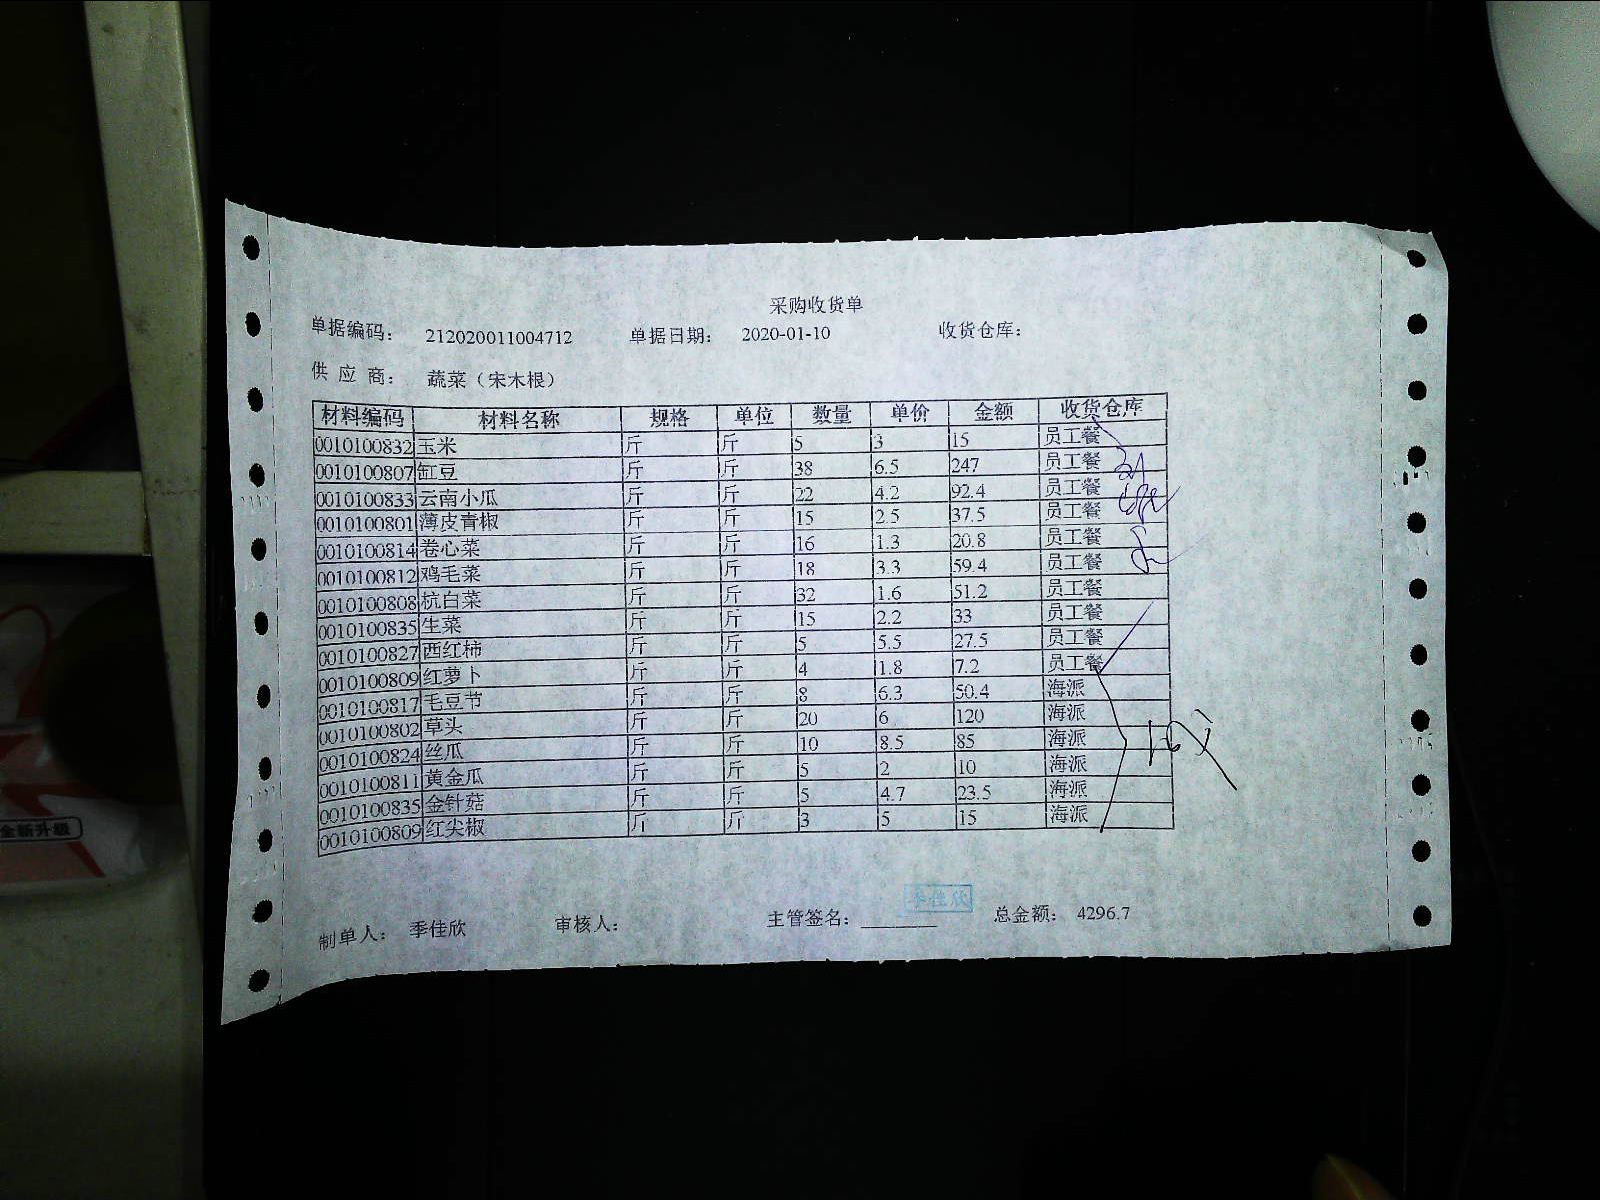 采购收货单
单据编码： 212020011004712 单据日期： 2020-01-10 收货仓库：
供 应 商： 蔬菜（宋木根）
材料编码 材料名称 规格 单位 数量 单价 金额 收货仓库
0010100832 玉米 斤 斤 5 3 15 员工餐
0010100807 缸豆 斤 斤 38 6.5 247 员工餐
0010100833 云南小瓜 斤 斤 22 4.2 92.4 员工餐
0010100801 薄皮青椒 斤 斤 15 2.5 37.5 员工餐
0010100814 卷心菜 斤 斤 16 1.3 20.8 员工餐
0010100812 鸡毛菜 斤 斤 18 3.3 59.4 员工餐
0010100808 杭白菜 斤 斤 32 1.6 51.2 员工餐
0010100835 生菜 斤 斤 15 2.2 33 员工餐
0010100827 西红柿 斤 斤 5 5.5 27.5 员工餐
0010100809 红萝卜 斤 斤 4 1.8 7.2 员工餐
0010100817 毛豆节 斤 斤 8 6.3 50.4 海派
0010100802 草头 斤 斤 20 6 120 海派
0010100824 丝瓜 斤 斤 10 8.5 85 海派
0010100811 黄金瓜 斤 斤 5 2 10 海派
0010100835 金针菇 斤 斤 5 4.7 23.5 海派
0010100809 红尖椒 斤 斤 3 5 15 海派
季佳欣
制单人： 季佳欣 审核人： 主管签名： 总金额： 4296.7
全新升级